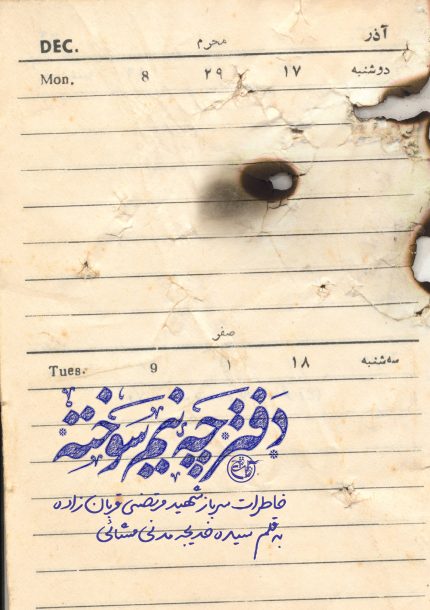 DEC. محرم آذر
Mon. 8 ۲۹ ۱۷ دوشنبه
صفر
Tues. 9 ۱ ۱۸ سه‌شنبه
دفترچهٔ نیم سوخته
خاطرات سرباز شهید مرتضی قربان زاده
به قلم سیده خدیجه مدنی مشائی